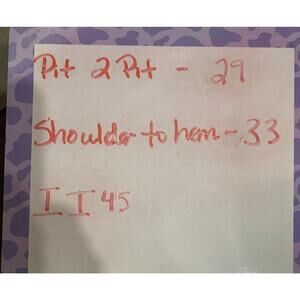 Pit 2 Pit - 29
Shoulder to hem - 33
I I 45